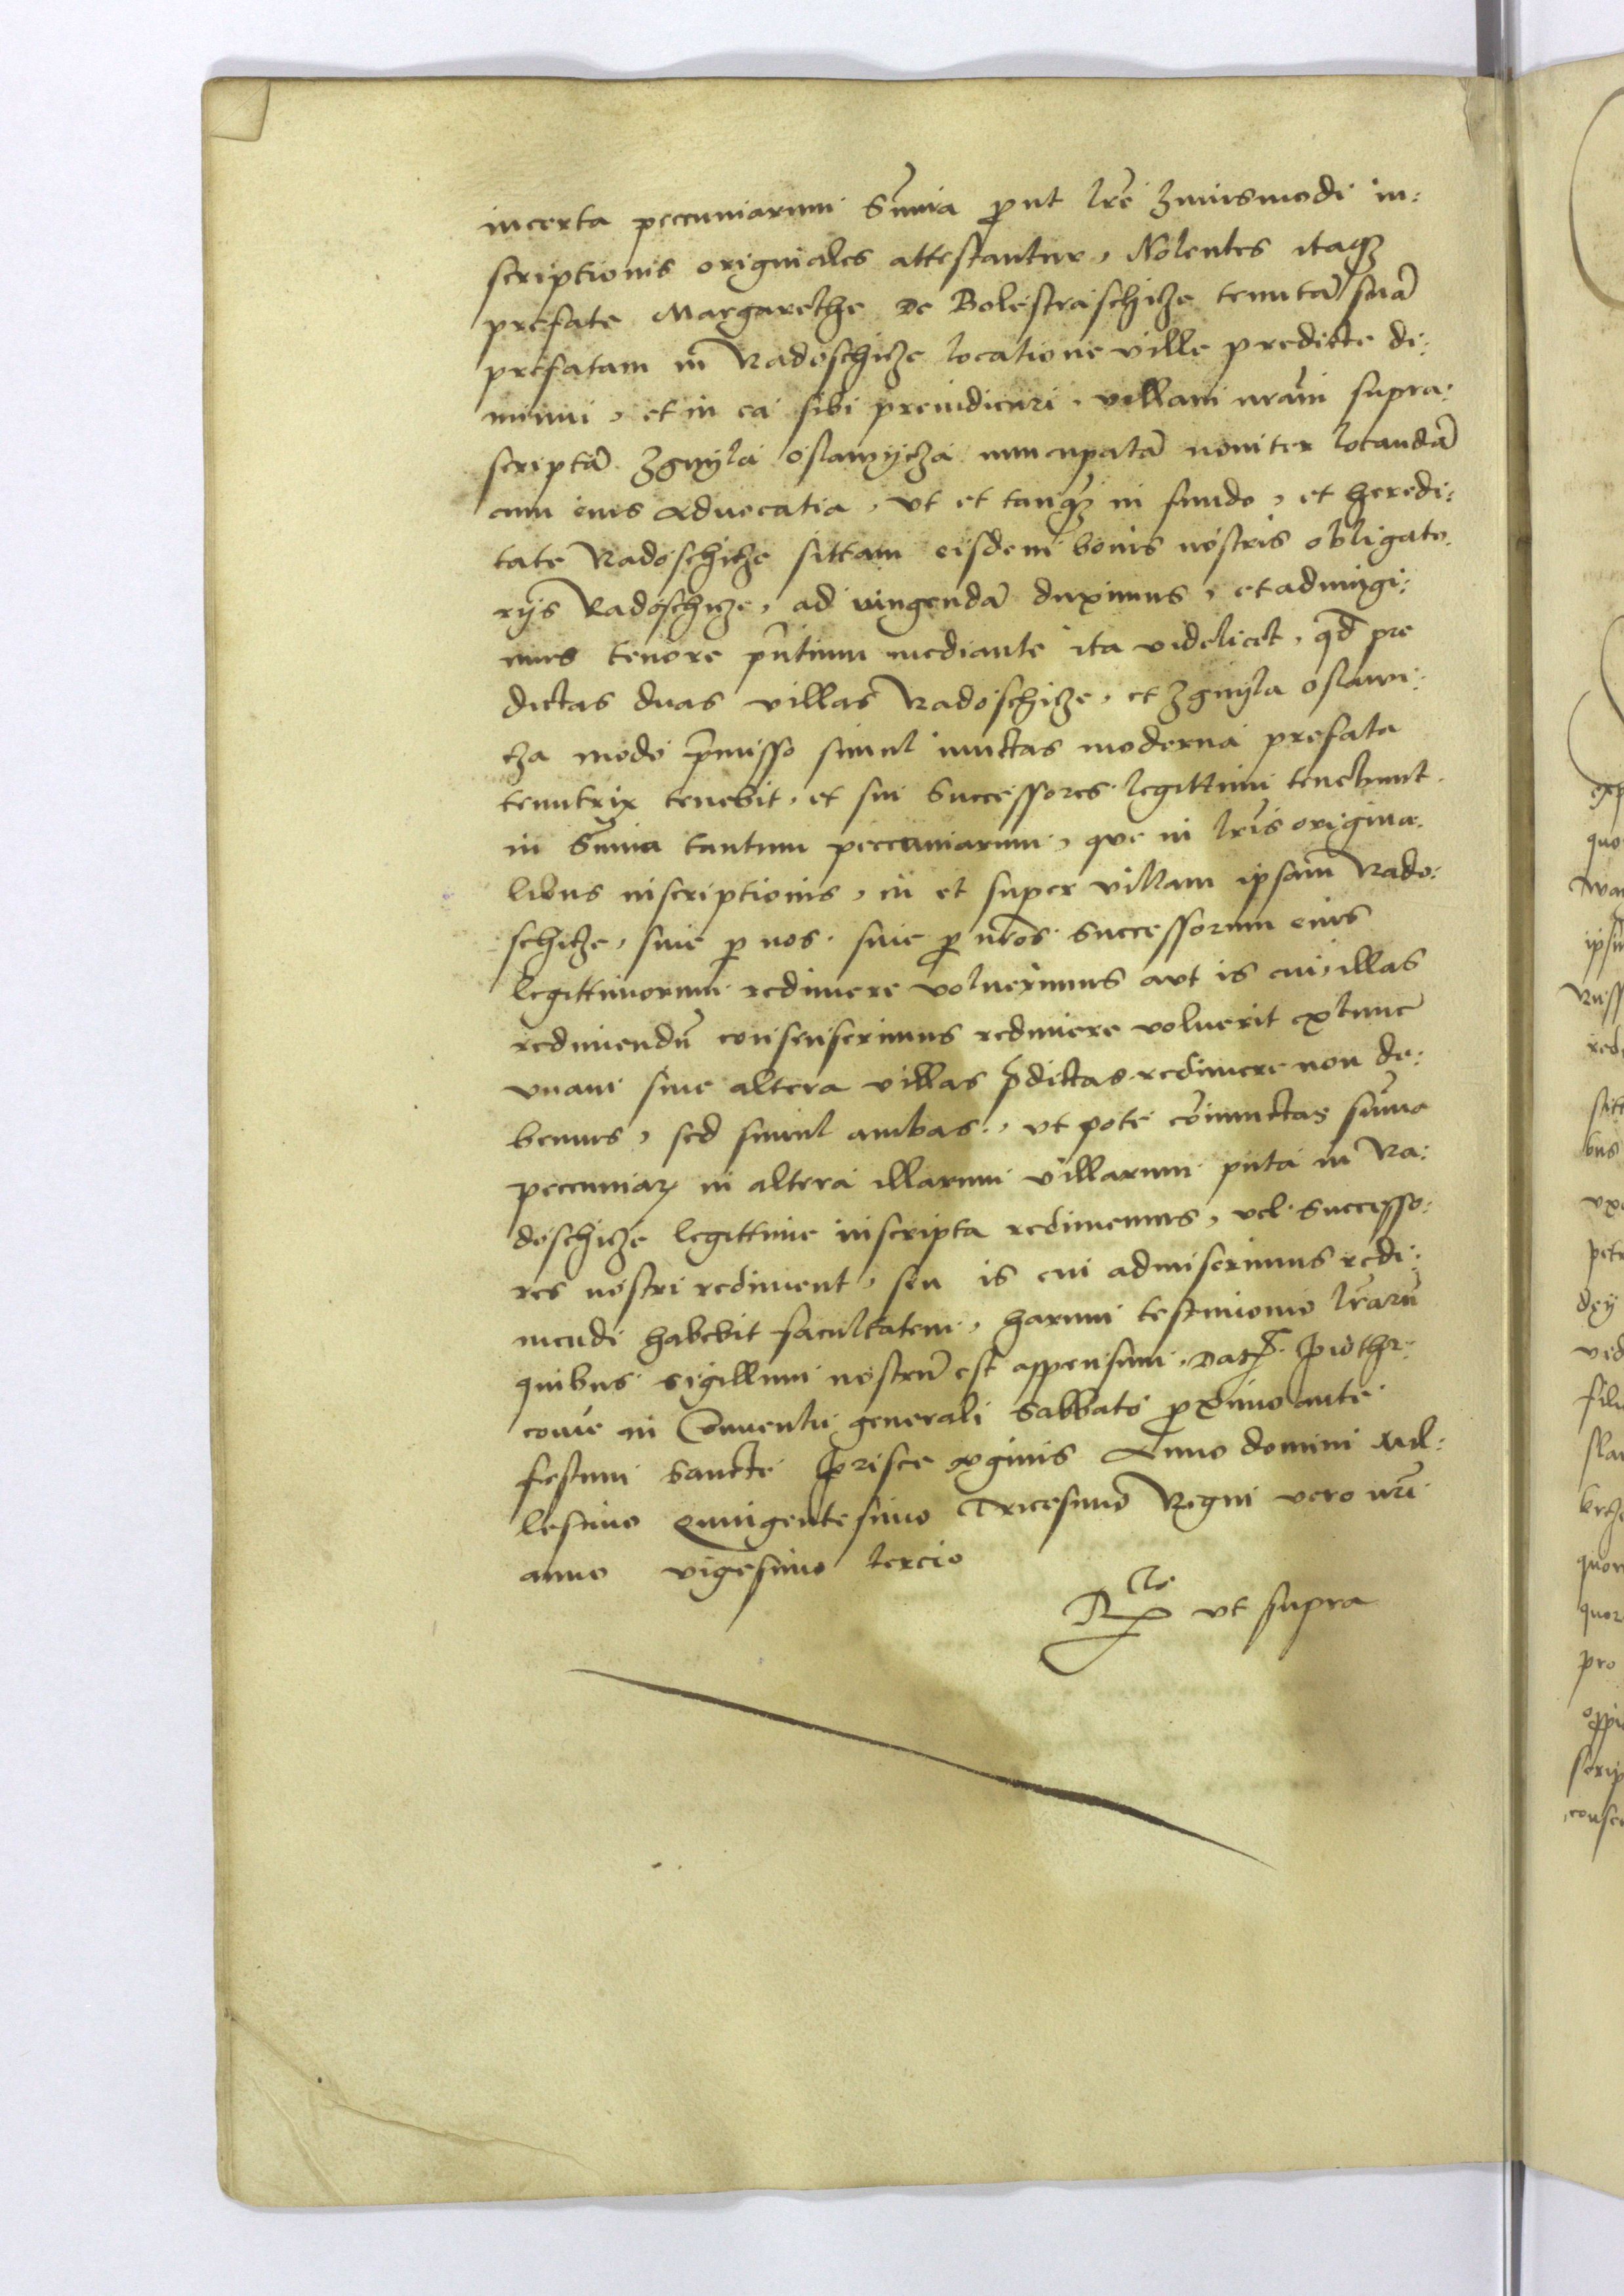 in certa pecuniarum Summa prout lre huiusmodi in:
scriptionis originales attestantur, Nolentes itaqz
prefate Margarethe de Bolestraschicze tenutã suã
prefatam in Radoschicze locatione ville predicte di:
minui, et in ea sibi preiudicari, villam nram supra:
scriptã Zgnyla oslawycza nuncupatã noviter locandã
cum eius Advocatia, ut et tanqz in fundo, et heredi:
tate Radoschicze sittam eisdem bonis nostris obligato.
rijs Radoschicze, ad iungendã duximus, et adiungi:
mus tenore pntium mediante ita videlicet, qd pre
dictas duas villas Radoschicze, et Zgnyla oslawi:
cza modo pmisso simul iunctas moderna prefata
tenutrix tenebit, et sui Successores legittimi tenebunt
in Summa tantum pecuniarum, que in lris origina.
libus inscriptionis, in et super villam ipsam Rado:
schicze, sive p nos sive p nros Successorum eius
legittimorum redimere voluerimus aut is cui illas
redimendũ consenserimus redimere voluerit extunc
unam sine altera villas pdictas redimere non de:
bemus, sed simul ambas, ut pote coniunctas sũma
pecuniarz in altera illarum villarum puta in Ra:
doschicze legittime inscripta redimemus, vel Successo:
res nostri rediment, seu is cui admiserimus redi:
mendi habebit facultatem, harum testimonio lrarũ
quibus sigillum nostrũ est appensum, Datz Piothr:
covie in Conventu generali Sabbato proximo ante
festum Sancte Prisce virginis Anno domini Mil:
lesimo Quingentesimo Tricesimo Regni vero nri
anno vigesimo tercio
Rcto ut supra